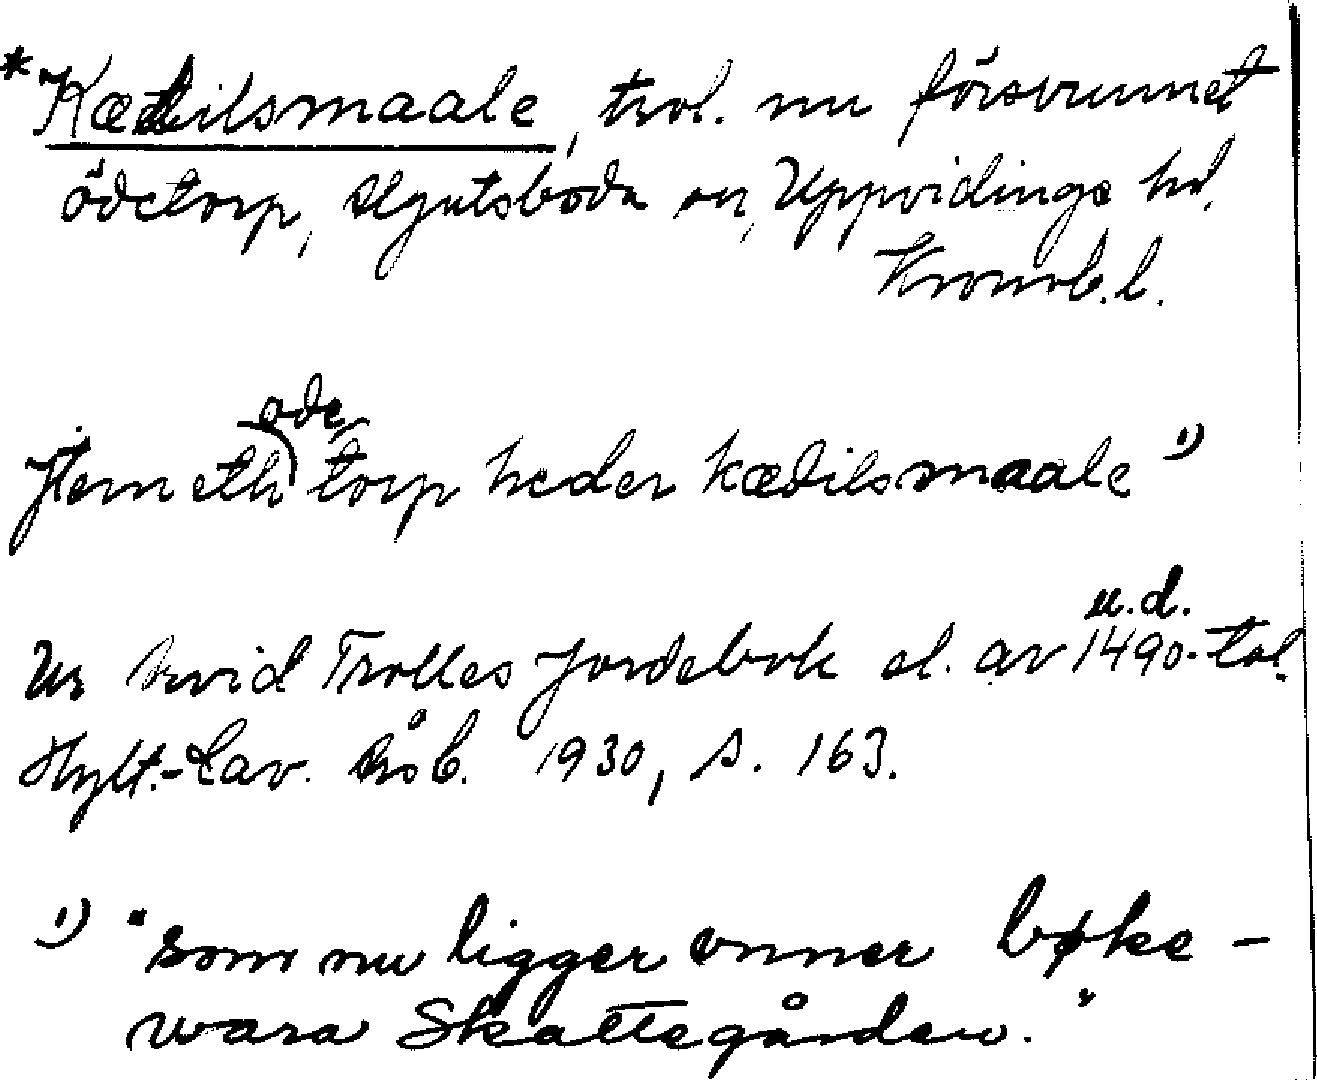 *Kædilsmaale, trol. nu försvunnet
ödetorp, Älgutsboda sn, Uppvidinge hd,
Kronob. l.
Jtem eth ode torp heder kædilsmaale 1)
Ur Arvid Trolles Jordebok el. av u.d. 1490-tal.
Hylt.-Cav. årsb. 1930, s. 163.
1) "som nu ligger vnner bøke-
wara Skattegården."